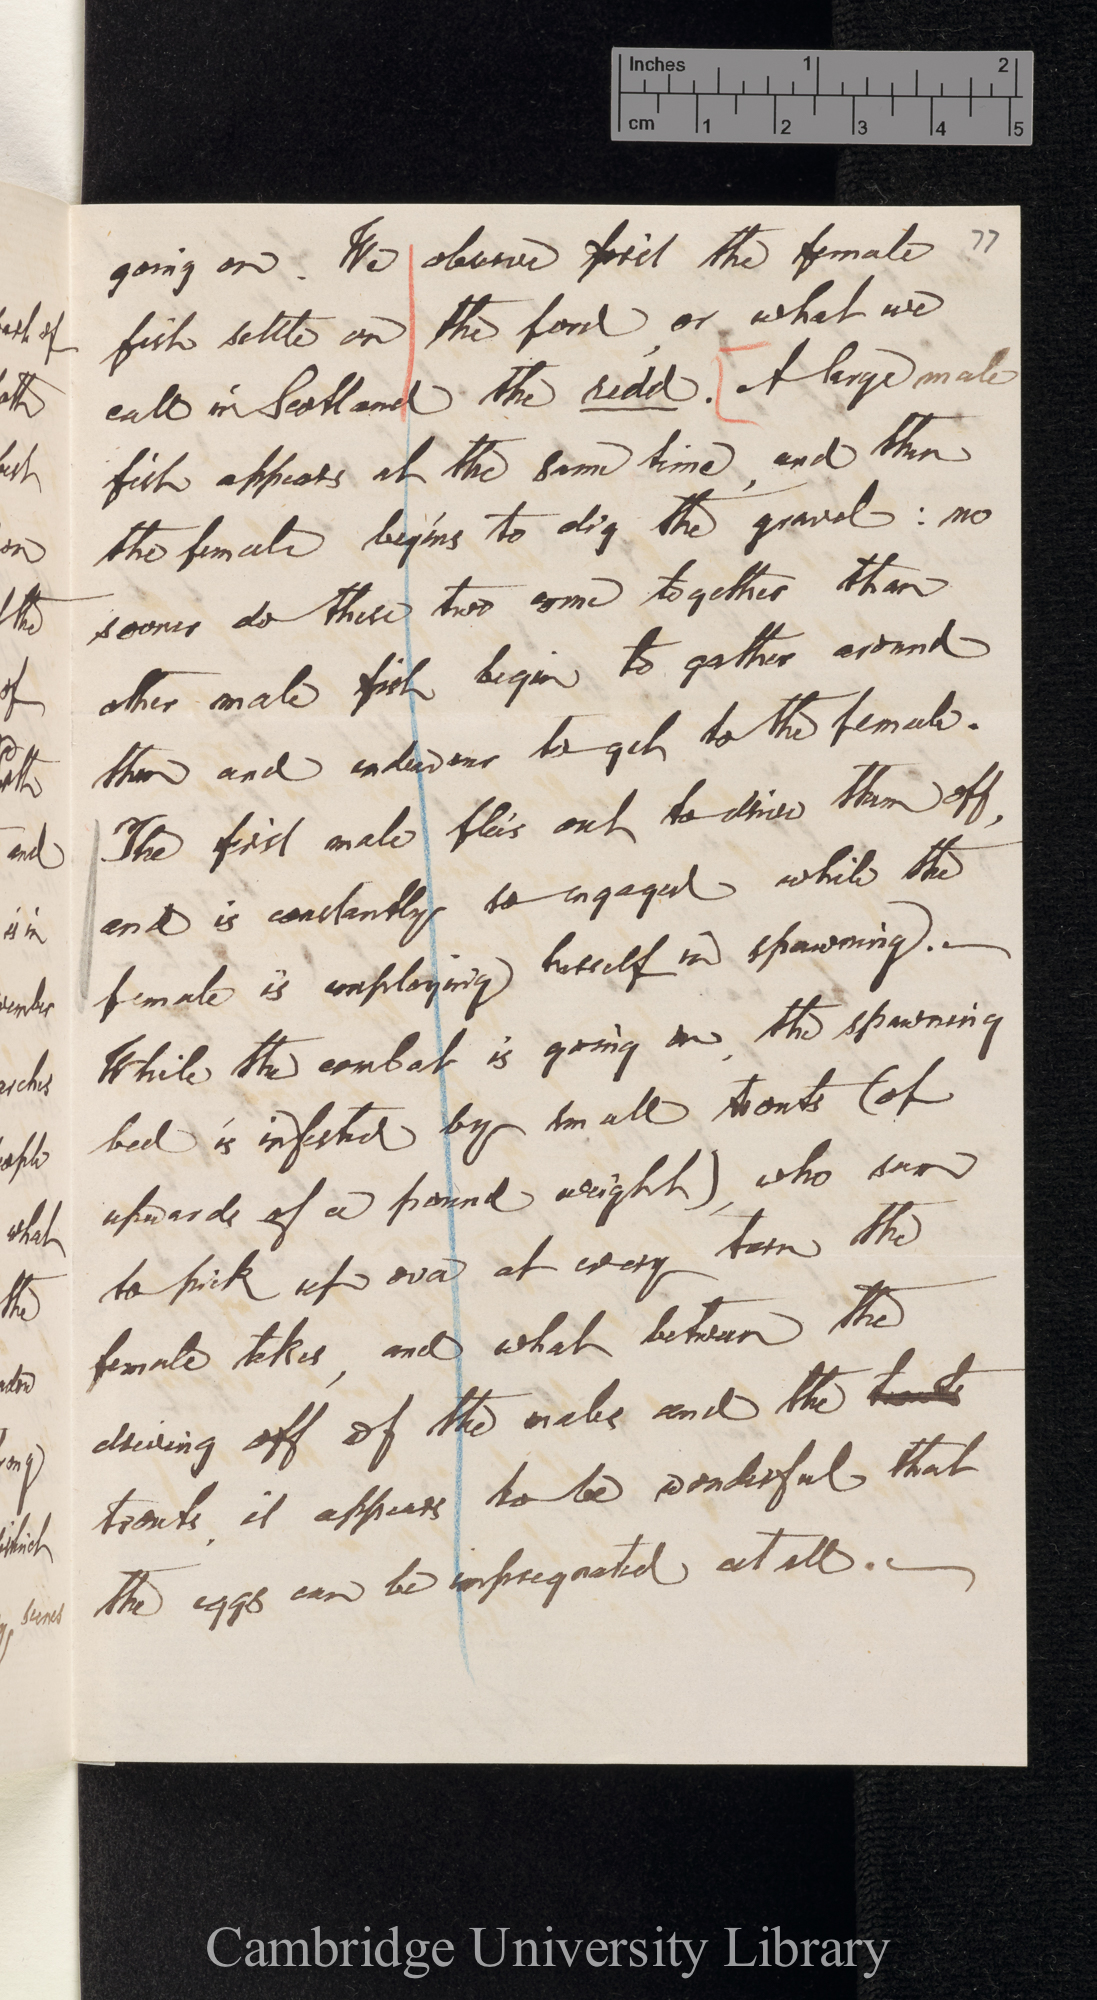 Inches 1 2
cm 1 2 3 4 5
77
going on. We observe first the female
fish settle on the ford, or what we
call in Scotland the redd. [A large male
fish appears at the same time, and then
the female begins to dig the gravel: no
sooner do these two come together than
other male fish begin to gather around
them and endeavour to get to the female.
The first male flies out to drive them off,
and is constantly so engaged while the
female is employing herself in spawning). —
While the combat is going on, the spawning
bed is infested by small trouts (of
upwards of a pound weight), who swm
to pick up ova at every turn the
female takes, and what between the
driving off of the males and the trouts
trouts, it appears to be wonderful that
the eggs can be impregnated at all. —
and
is in
what
the
which
scenes
Cambridge University Library